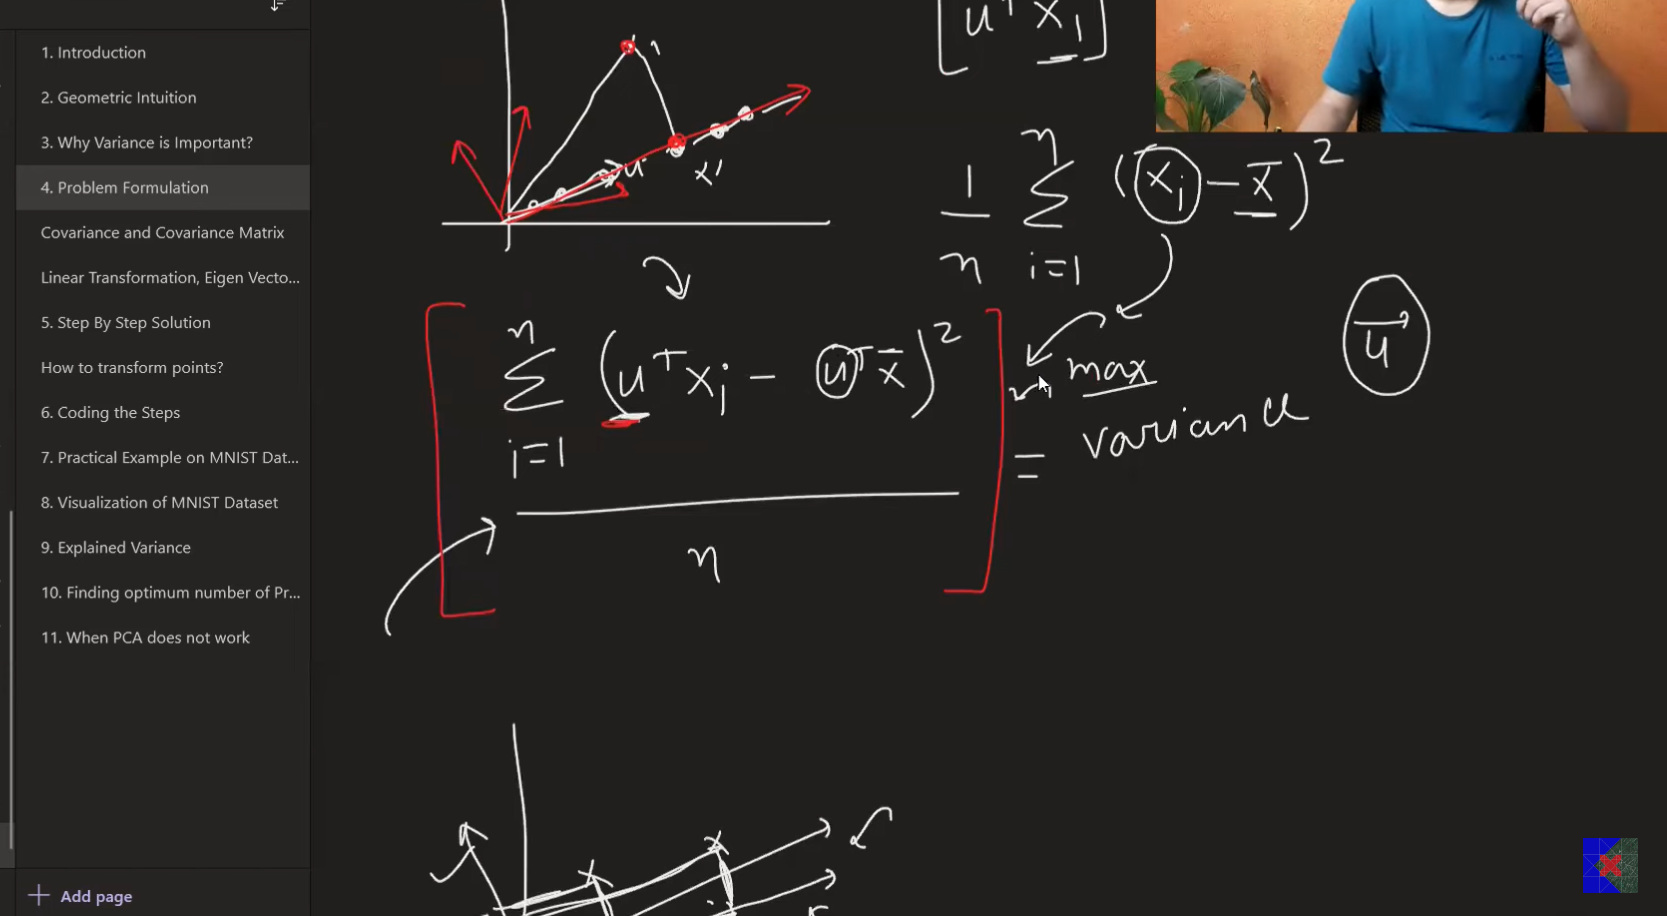 1. Introduction
2. Geometric Intuition
3. Why Variance is Important?
4. Problem Formulation
Covariance and Covariance Matrix
Linear Transformation, Eigen Vecto...
5. Step By Step Solution
How to transform points?
6. Coding the Steps
7. Practical Example on MNIST Dat...
8. Visualization of MNIST Dataset
9. Explained Variance
10. Finding optimum number of Pr...
11. When PCA does not work
Add page
[uᵀ xᵢ]
u x'
1/n Σ i=1 n (xᵢ - x̄)²
Σ i=1 n (uᵀxᵢ - uᵀx̄)²
n
max
= variance
u⃗